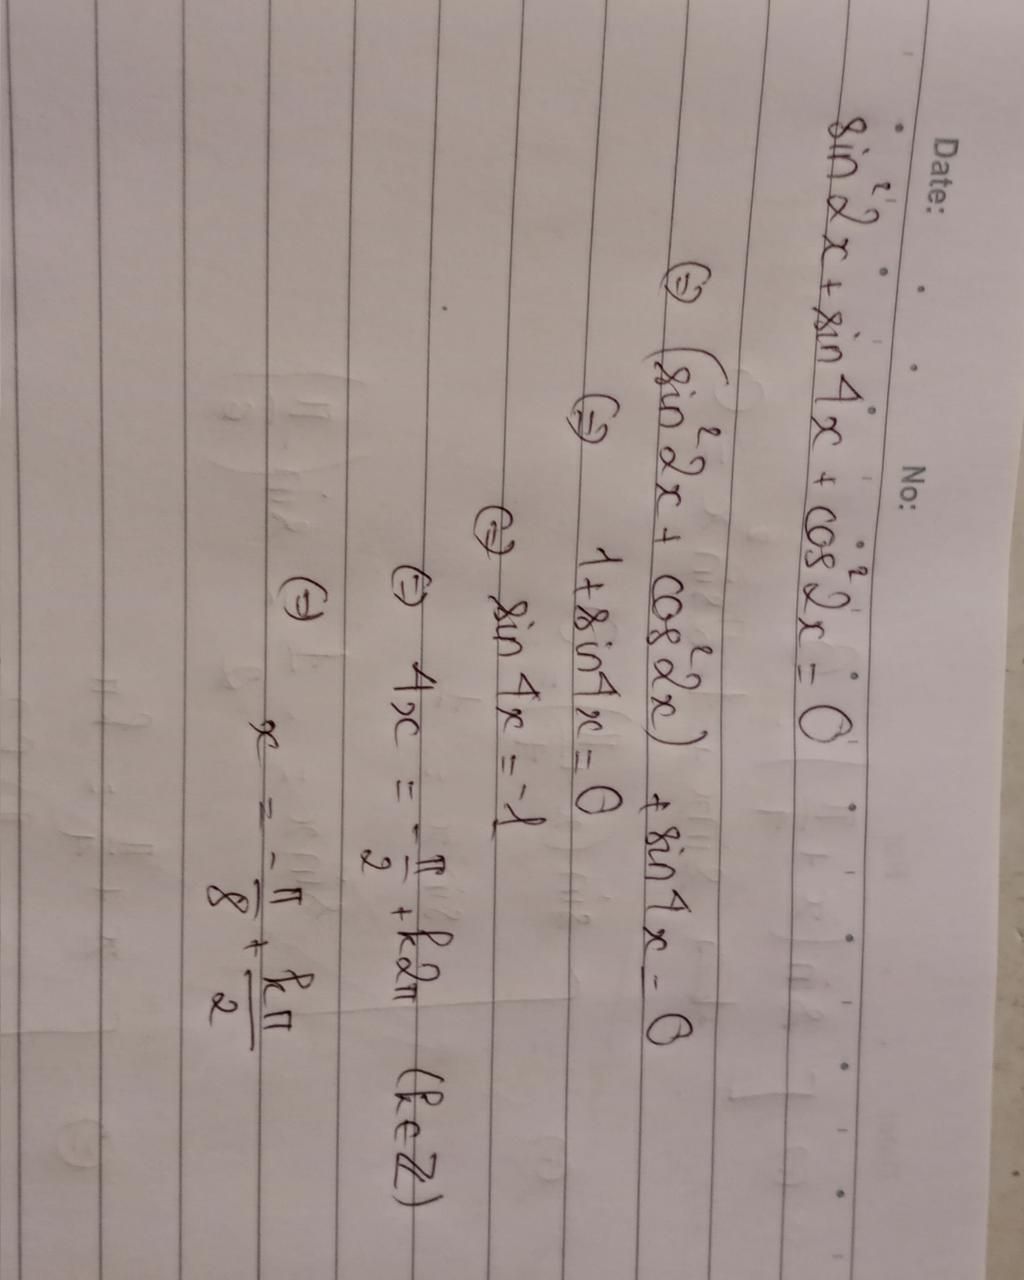 Date: No:
sin²2x + sin4x + cos²2x = 0
(=) (sin²2x + cos²2x) + sin4x - 0
(=) 1 + sin4x = 0
(=) sin4x = -1
(=) 4x = -π/2 + k2π (k∈ℤ)
(=) x = -π/8 + kπ/2